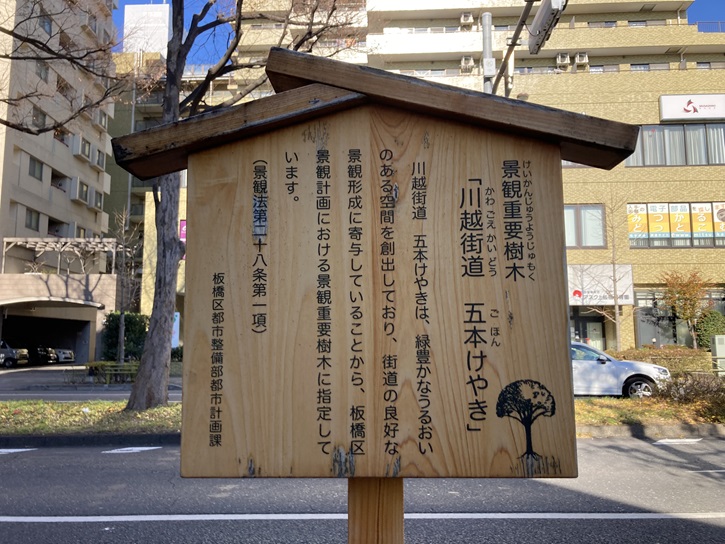 けいかんじゅうようじゅもく
景観重要樹木
かわごえかいどう　ごほん
「川越街道　五本けやき」
川越街道　五本けやきは、緑豊かなうるおい
のある空間を創出しており、街道の良好な
景観形成に寄与していることから、板橋区
景観計画における景観重要樹木に指定して
います。
（景観法第二十八条第一項）
板橋区都市整備部都市計画課